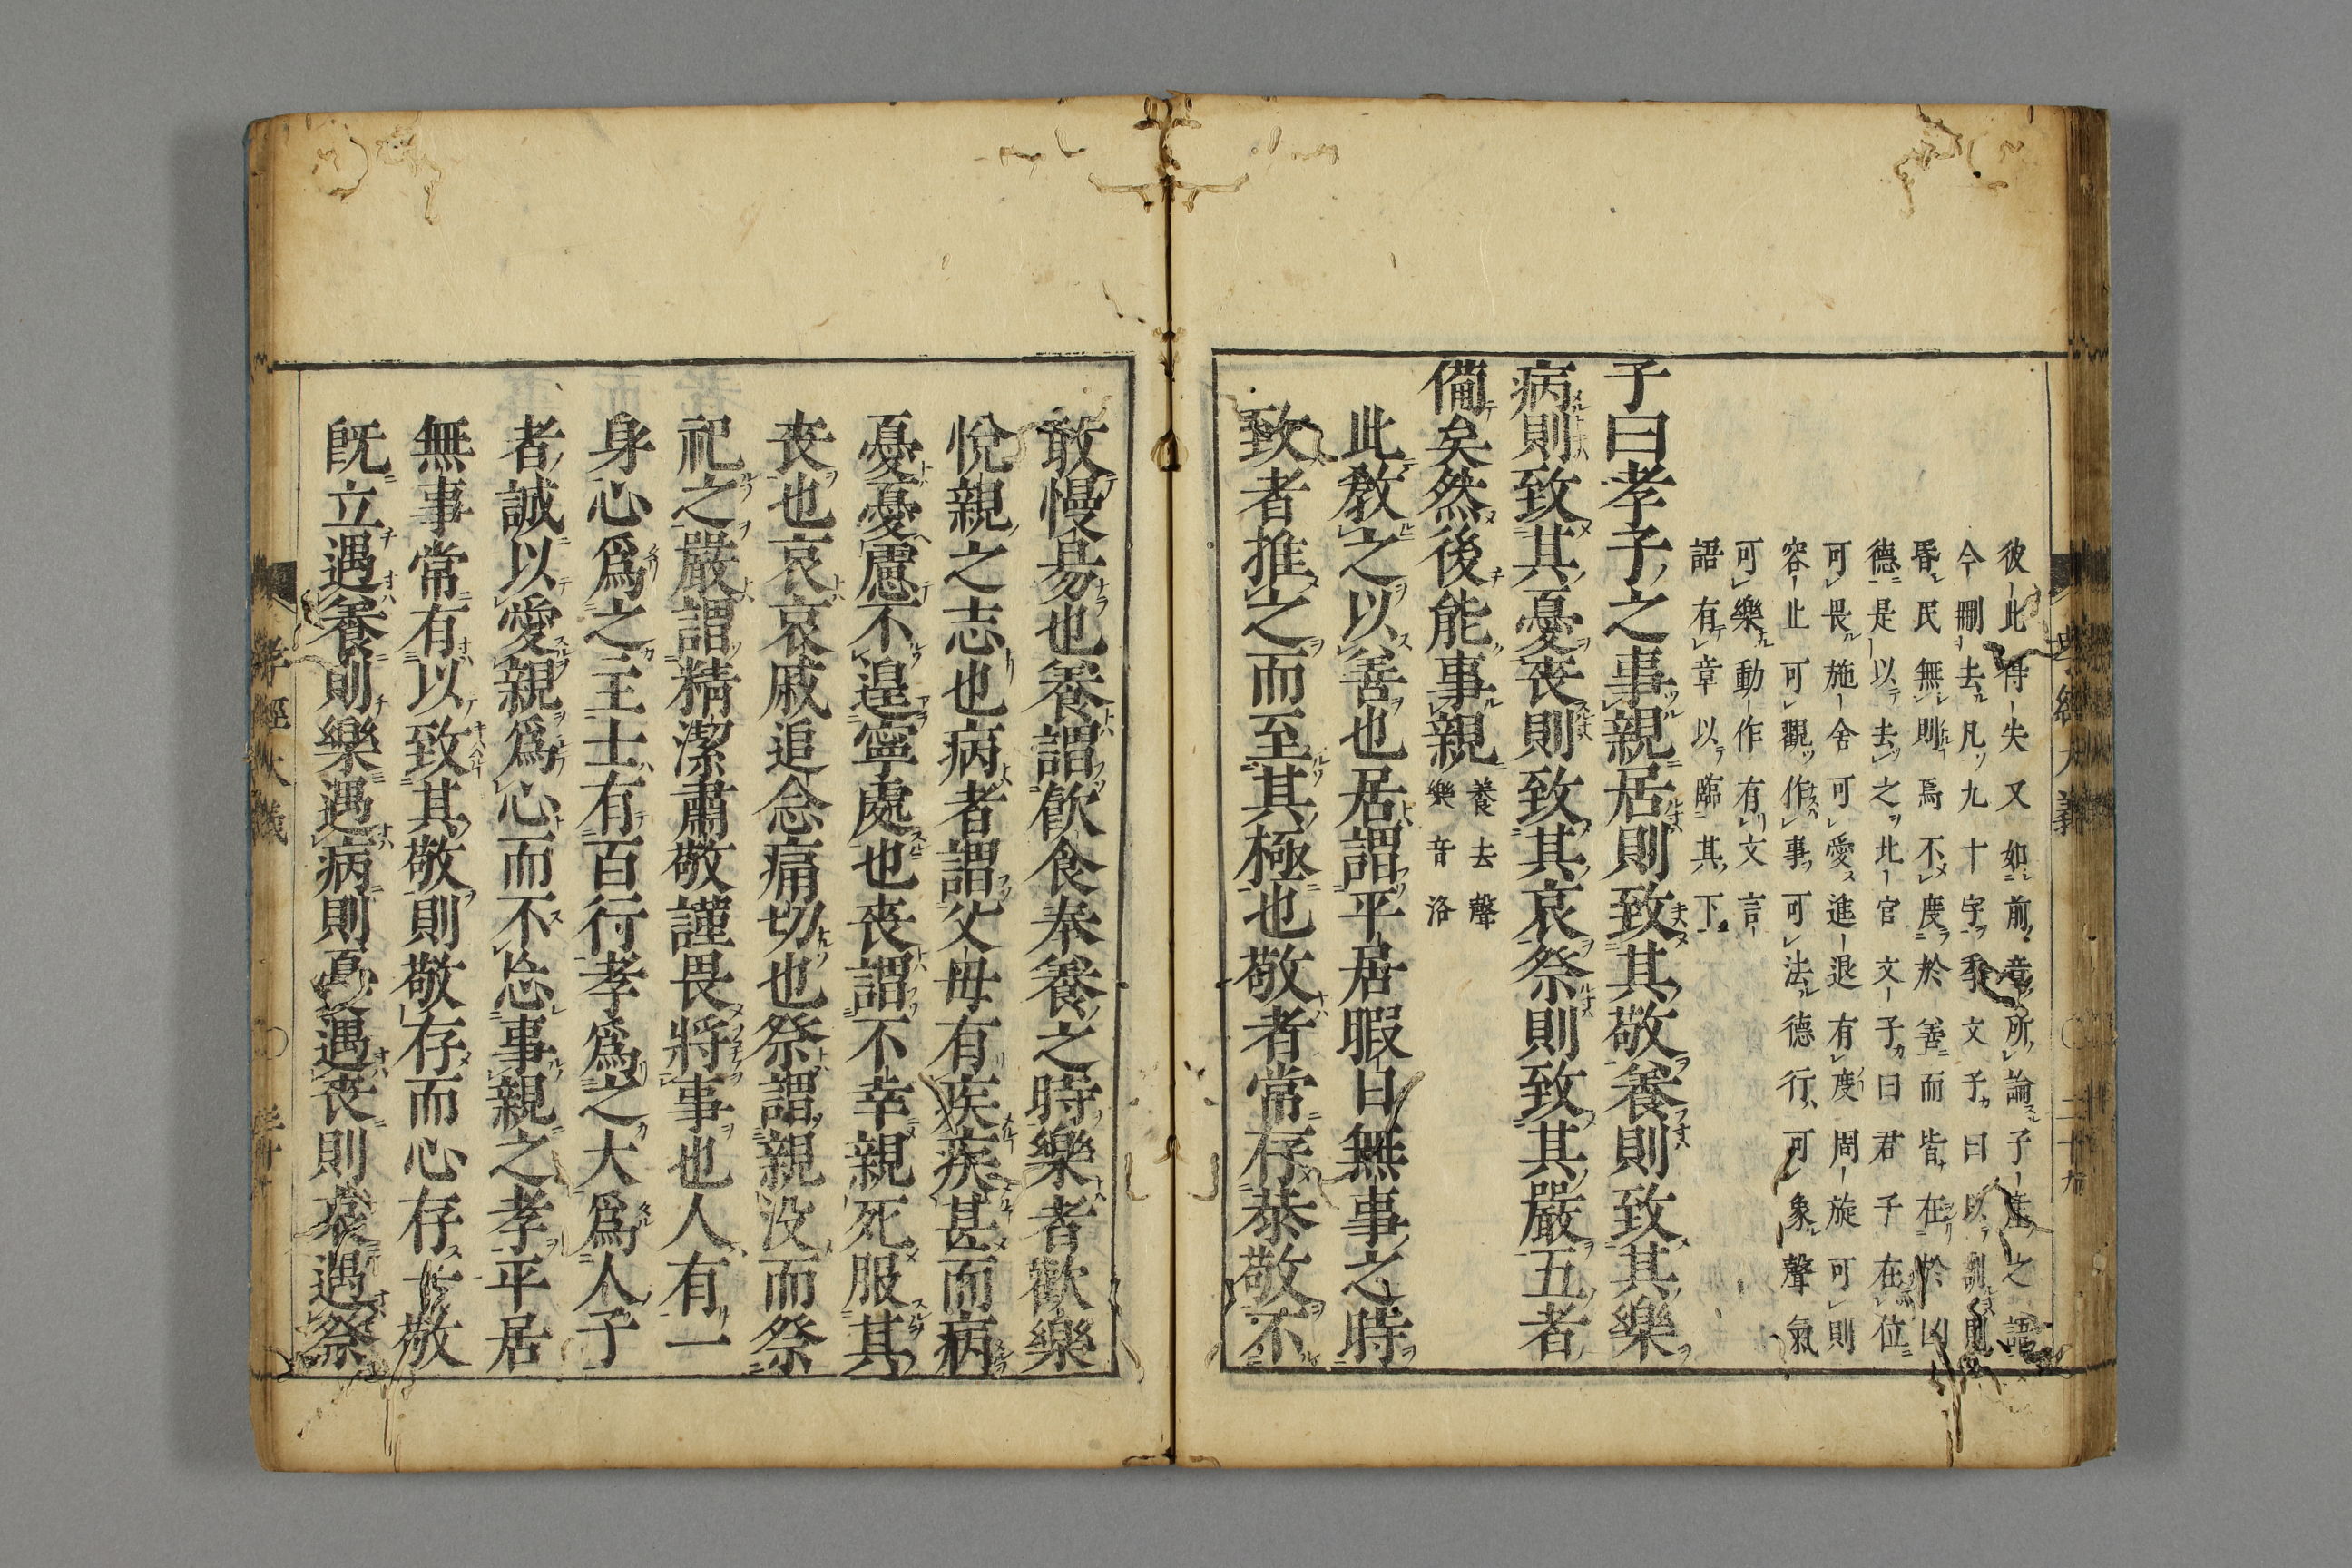 彼此得失又如前章所論子產之語
今刪去凡九十字季文子曰以訓則
昏民無則焉不度於善而皆在於凶
德是以去之北宮文子曰君子在位
可畏施舍可愛進退有度周旋可則
容止可觀作事可法德行可象聲氣
可樂動作有文言
語有章以臨其下
子曰孝子之事親居則致其敬養則致其樂
病則致其憂喪則致其哀祭則致其嚴五者
備矣然後能事親養去聲
樂音洛
此教之以善也居謂平居暇日無事之時
致者推之而至其極也敬者常存恭敬不
敢慢易也養謂飲食奉養之時樂者歡樂
悅親之志也病者謂父母有疾疾甚而病
憂憂慮不遑寧處也喪謂不幸親死服其
喪也哀哀戚追念痛切也祭謂親没而祭
祀之嚴謂精潔肅敬謹畏將事也人有一
身心為之主士有百行孝為之大為人子
者誠以愛親為心而不忘事親之孝平居
無事常有以致其敬則敬存而心存敬
既立遇養則樂遇病則憂遇喪則哀遇祭
孝經大義
二十九